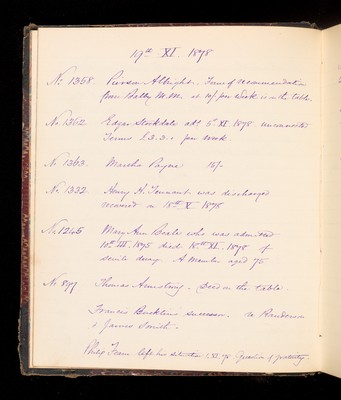 19th XI. 1878
No 1358. Pierson Allright. Form of recommendation
from Derby M.M. at 10/ per Week is on the table.
No. 1362 Edgar Stockdale adt. 5th XI 1878 unconnected
Terms £3.3.- per week.
No 1363. Martha Payne 15/-
No. 1332. Henry H. Tennant was discharged
recovered on 18th X 1878
No 1245 Mary Ann Beale who was admitted
10th III. 1875 died 15th XI. 1878 of
senile decay. A Member aged 75
No 877 Thomas Armstrong. Deed on the table
Francis successor. to
& James Smith.
left his situation XI 78 Question of gratuity